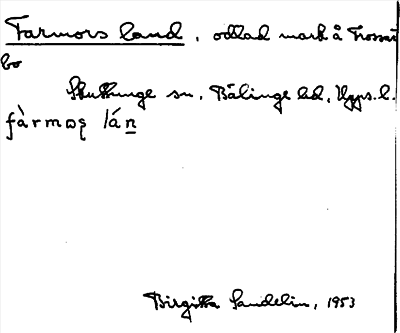 Farmors land, odlad mark å Trossare
bo
Skuttunge sn, Bälinge hd, Upps.l.
fàrmωȿ lán
Birgitta Sandelin, 1953